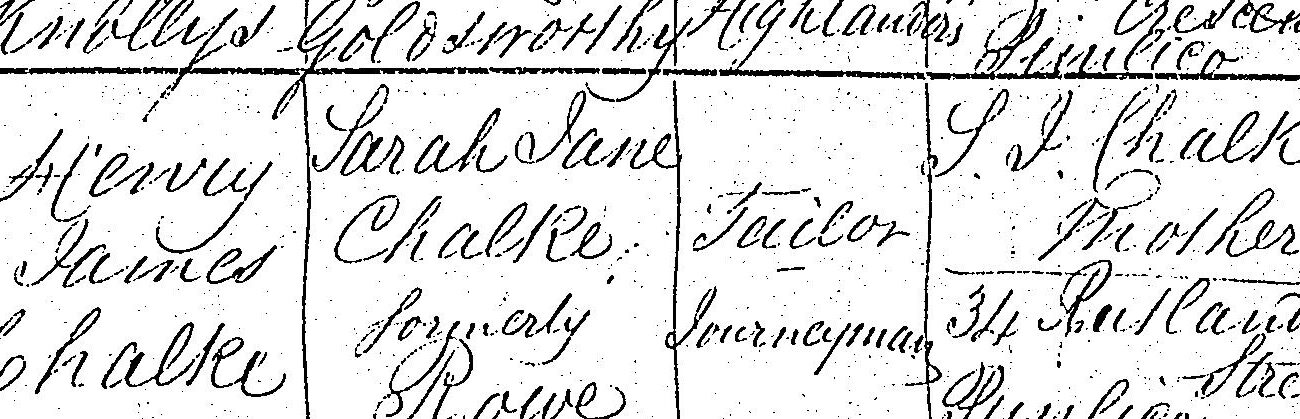 Knollys Goldsworthy Highlanders Crescen
Pimlico
Henry
James
Chalke
Sarah Jane
Chalke
formerly
Rowe
Tailor
Journeyman
S. J. Chalk
Mother
34 Rutland
Stre
Pimlico